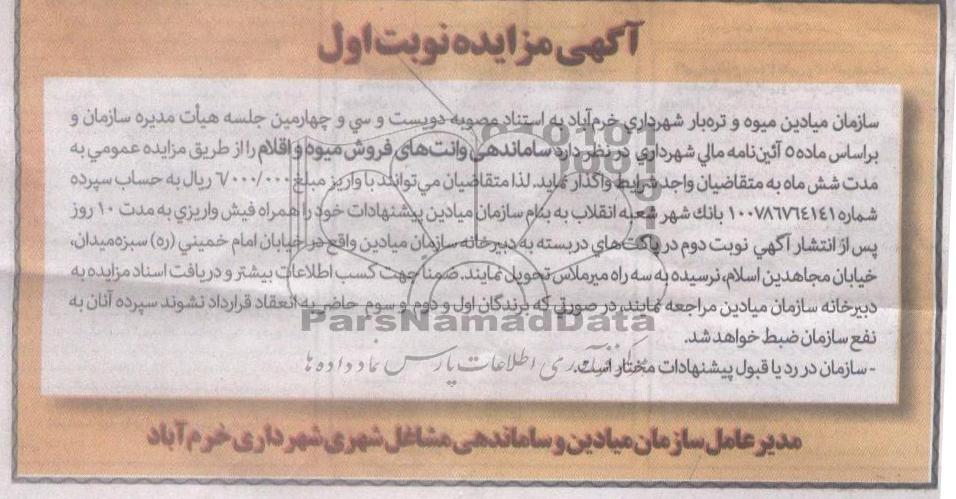 آگهی مزایده نوبت اول
سازمان میادین میوه و تره‌بار شهرداري خرم‌آباد به استناد مصوبه دویست و سي و چهارمین جلسه هیأت مدیره سازمان و
براساس ماده ۵ آئین‌نامه مالي شهرداري در نظر دارد ساماندهی وانت‌های فروش میوه و اقلام را از طریق مزایده عمومي به
مدت شش ماه به متقاضیان واجد شرایط واگذار نماید. لذا متقاضیان مي‌توانند با واریز مبلغ ۶/۰۰۰/۰۰۰ ریال به حساب سپرده
شماره ۱۰۰۷۸۶۷۶۴۱۴۱ بانك شهر شعبه انقلاب به بنام سازمان میادین پیشنهادات خود را همراه فیش واریزي به مدت ۱۰ روز
پس از انتشار آگهي نوبت دوم در پاكت‌هاي دربسته به دبیرخانه سازمان میادین واقع در خیابان امام خمیني (ره) سبزه‌میدان،
خیابان مجاهدین اسلام، نرسیده به سه راه میرملاس تحویل نمایند. ضمناً جهت كسب اطلاعات بیشتر و دریافت اسناد مزایده به
دبیرخانه سازمان میادین مراجعه نمایند، در صورتی كه برندگان اول و دوم و سوم حاضر به انعقاد قرارداد نشوند سپرده آنان به
نفع سازمان ضبط خواهد شد.
ParsNamadData
- سازمان در رد یا قبول پیشنهادات مختار است.
آوری اطلاعات پارس نماد داده ها
مدیرعامل سازمان میادین و ساماندهی مشاغل شهری شهرداری خرم آباد